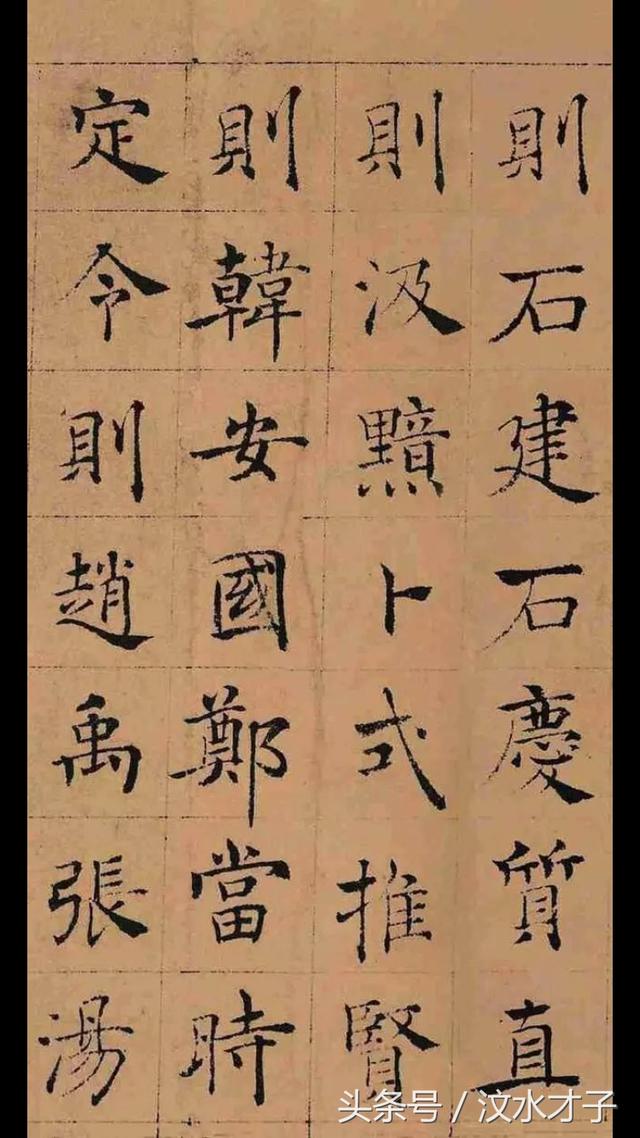 則石建石慶質直
則汲黯卜式推賢
則韓安國鄭當時
定令則趙禹張湯
头条号 / 汶水才子